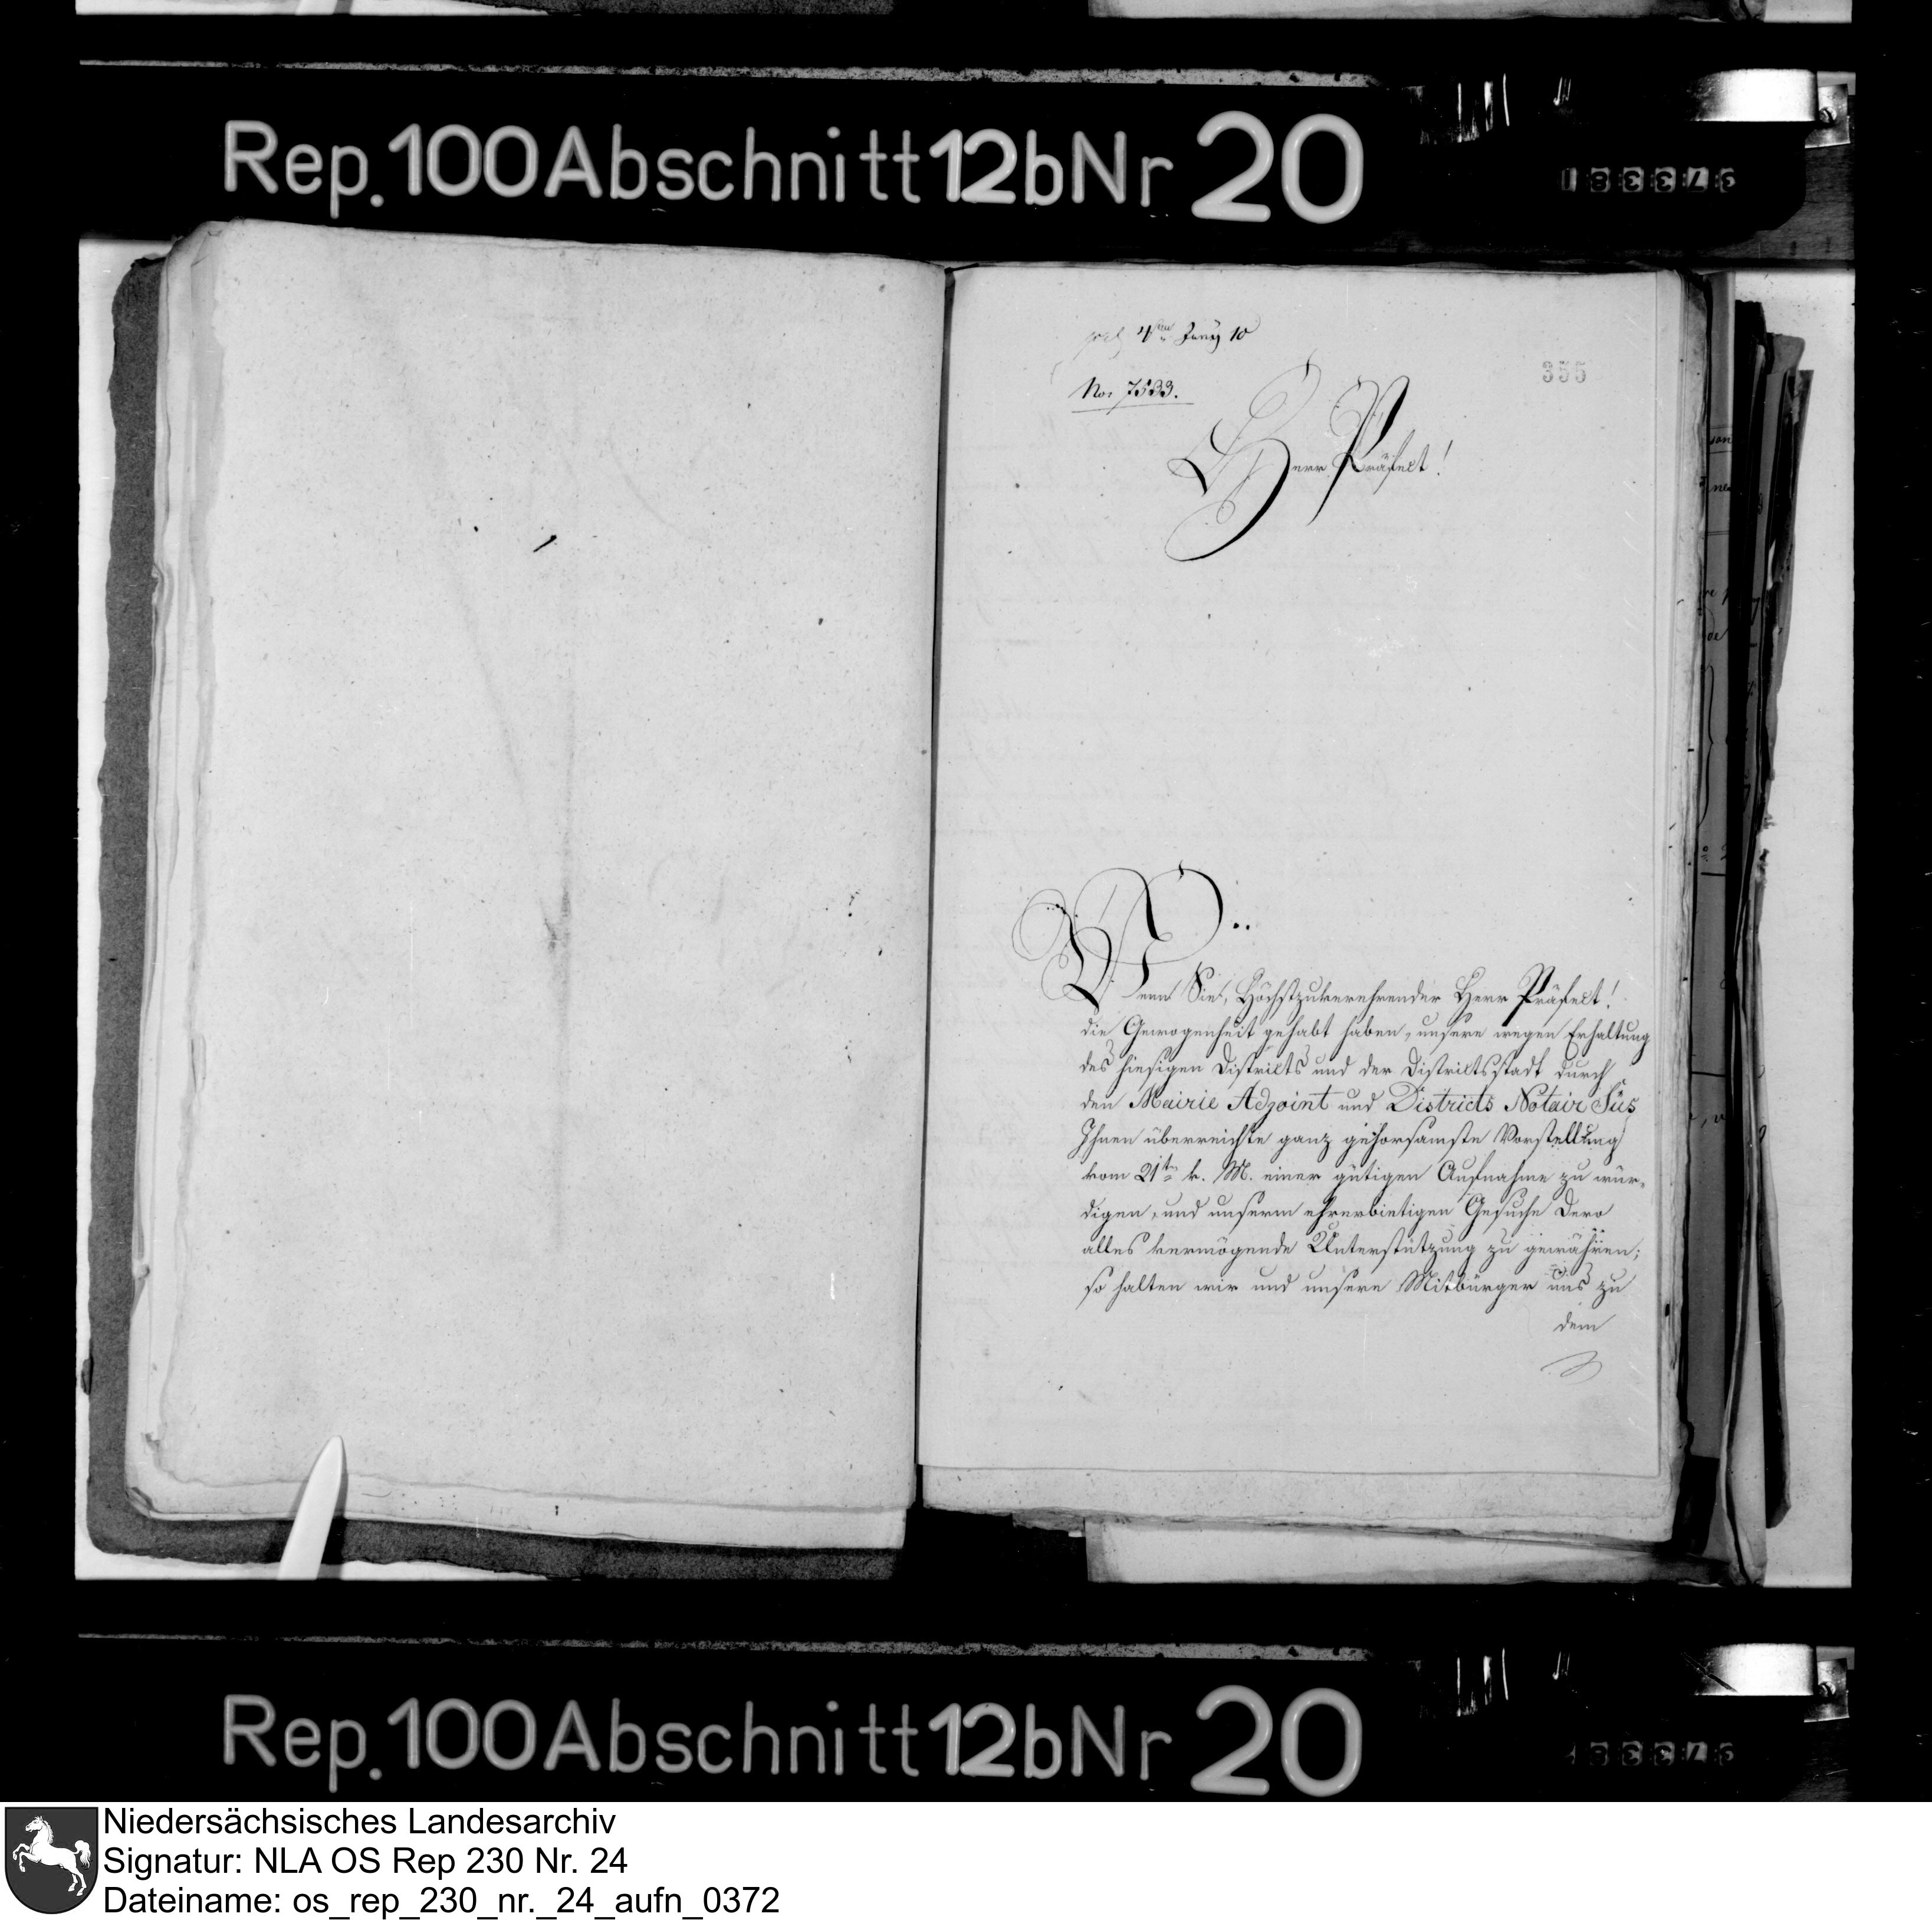 Rep. 100 Abschnitt 12b Nr 20
4ten Juny 10
355
No. 7533.
Herr Präfect!
Wenn Sie, Höchstzuverehrender Herr Präfect!
die Gewogenheit gehabt haben, unsere wegen Erhaltung
des hiesigen Districts und der Districtsstadt durch
den Mairie Adjoint und Districts Notair Süs
Ihnen überreichte ganz gehorsamste Vorstellung
vom 21ten v. M. einer gütigen Aufnahme zu wür-
digen, und unserm ehrerbietigen Gesuche Dero
alles vermögende Unterstützung zu gewähren;
so halten wir und unsere Mitbürger uns zu
dem
Rep. 100 Abschnitt 12b Nr 20
Niedersächsisches Landesarchiv
Signatur: NLA OS Rep 230 Nr. 24
Dateiname: os_rep_230_nr._24_aufn_0372